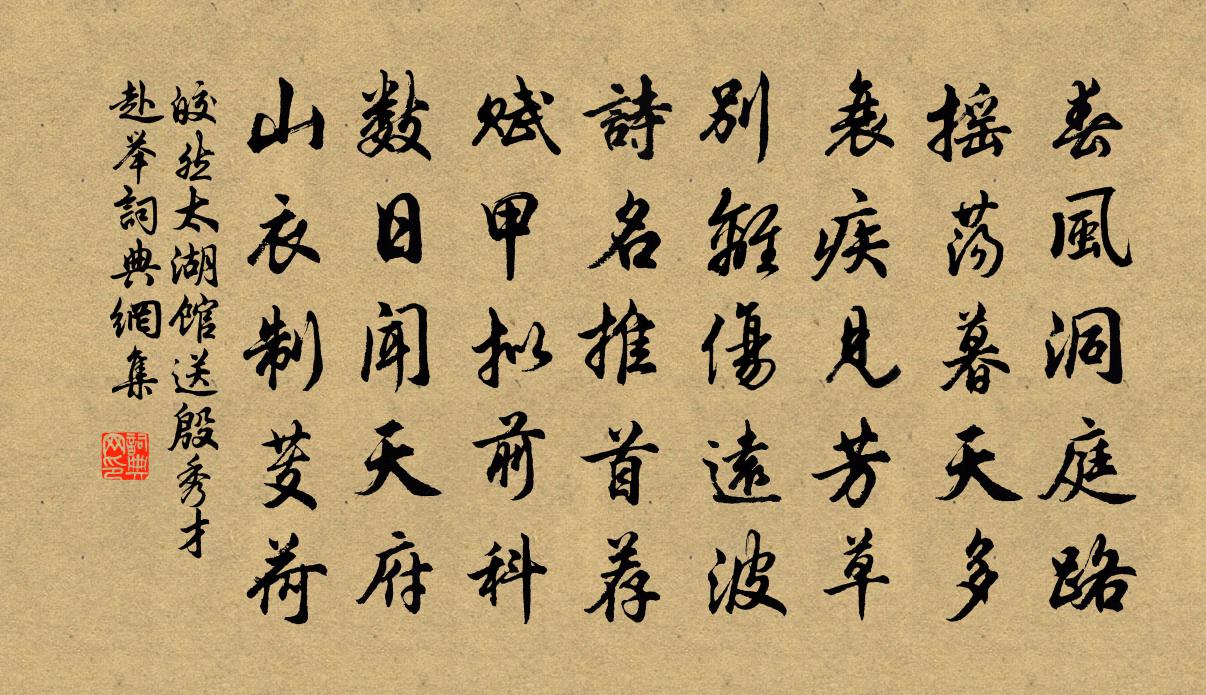 春風洞庭路
摇蕩暮天多
衰疾見芳草
別離傷遠波
詩名推首荐
賦甲拟前科
数日聞天府
山衣制芰荷
皎然太湖館送殷秀才
赴举詞典網集
詞典网印